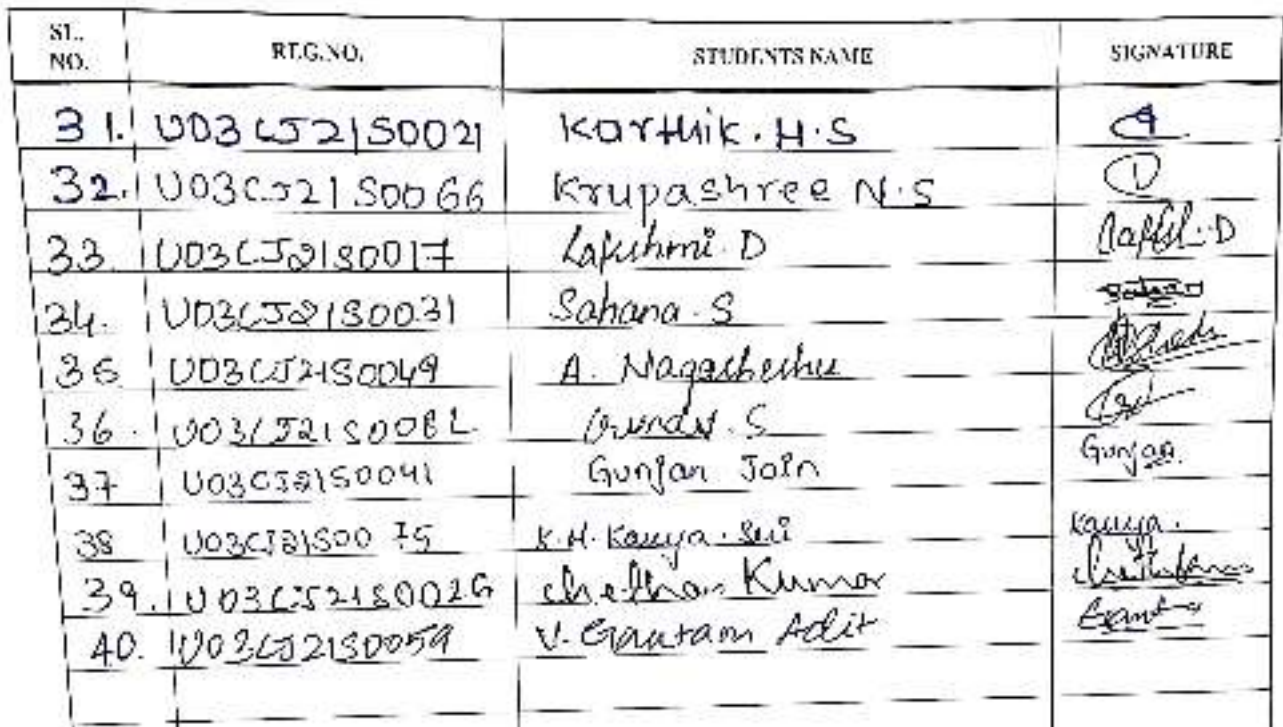 SL. NO. REG.NO. STUDENTS NAME SIGNATURE
31. U03CJ21S0021 Karthik. H.S
32. U03CJ21S0066 Krupashree N.S
33. U03CJ21S0017 D
34. U03CJ21S0031 Sahana. S
U03CJ21S0049 A. Nagasheshu
36. S
37 U03CJ21S0041 Gunjan Jain Gunjan.
38 U03CJ21S0075 K.H. Kavya. Sri Kavya.
39. U03CJ21S0026 Chethan Kumar
40. U03CJ21S0059 V. Gautam Adit